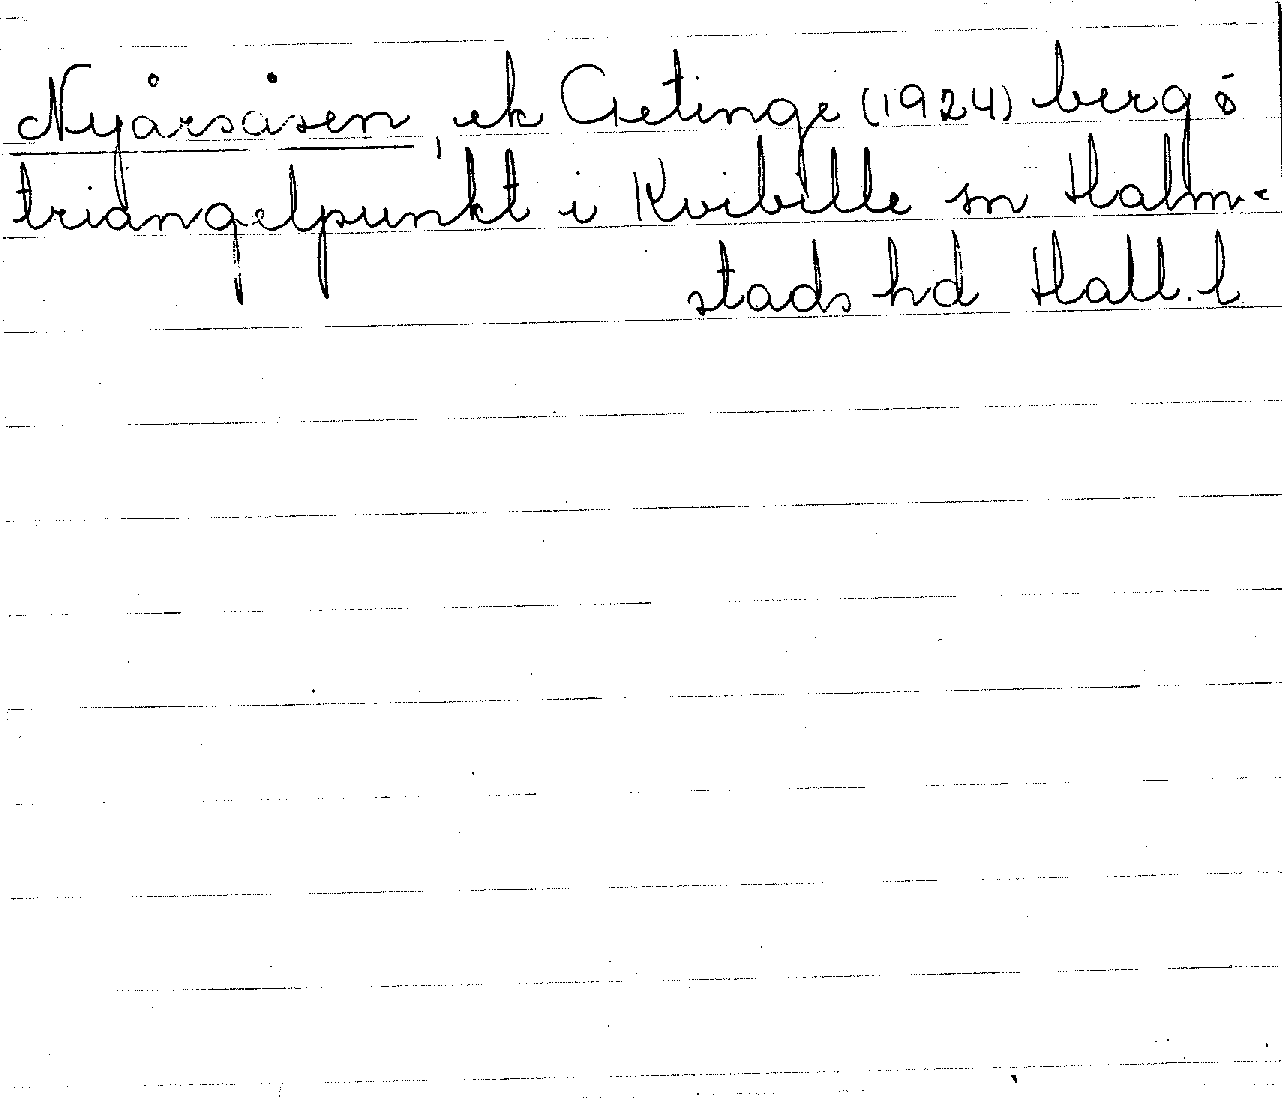 Nyårsåsen, ek Getinge (1924) berg o
triangelpunkt i Kvibille sn Halm-
stads hd Hall. l